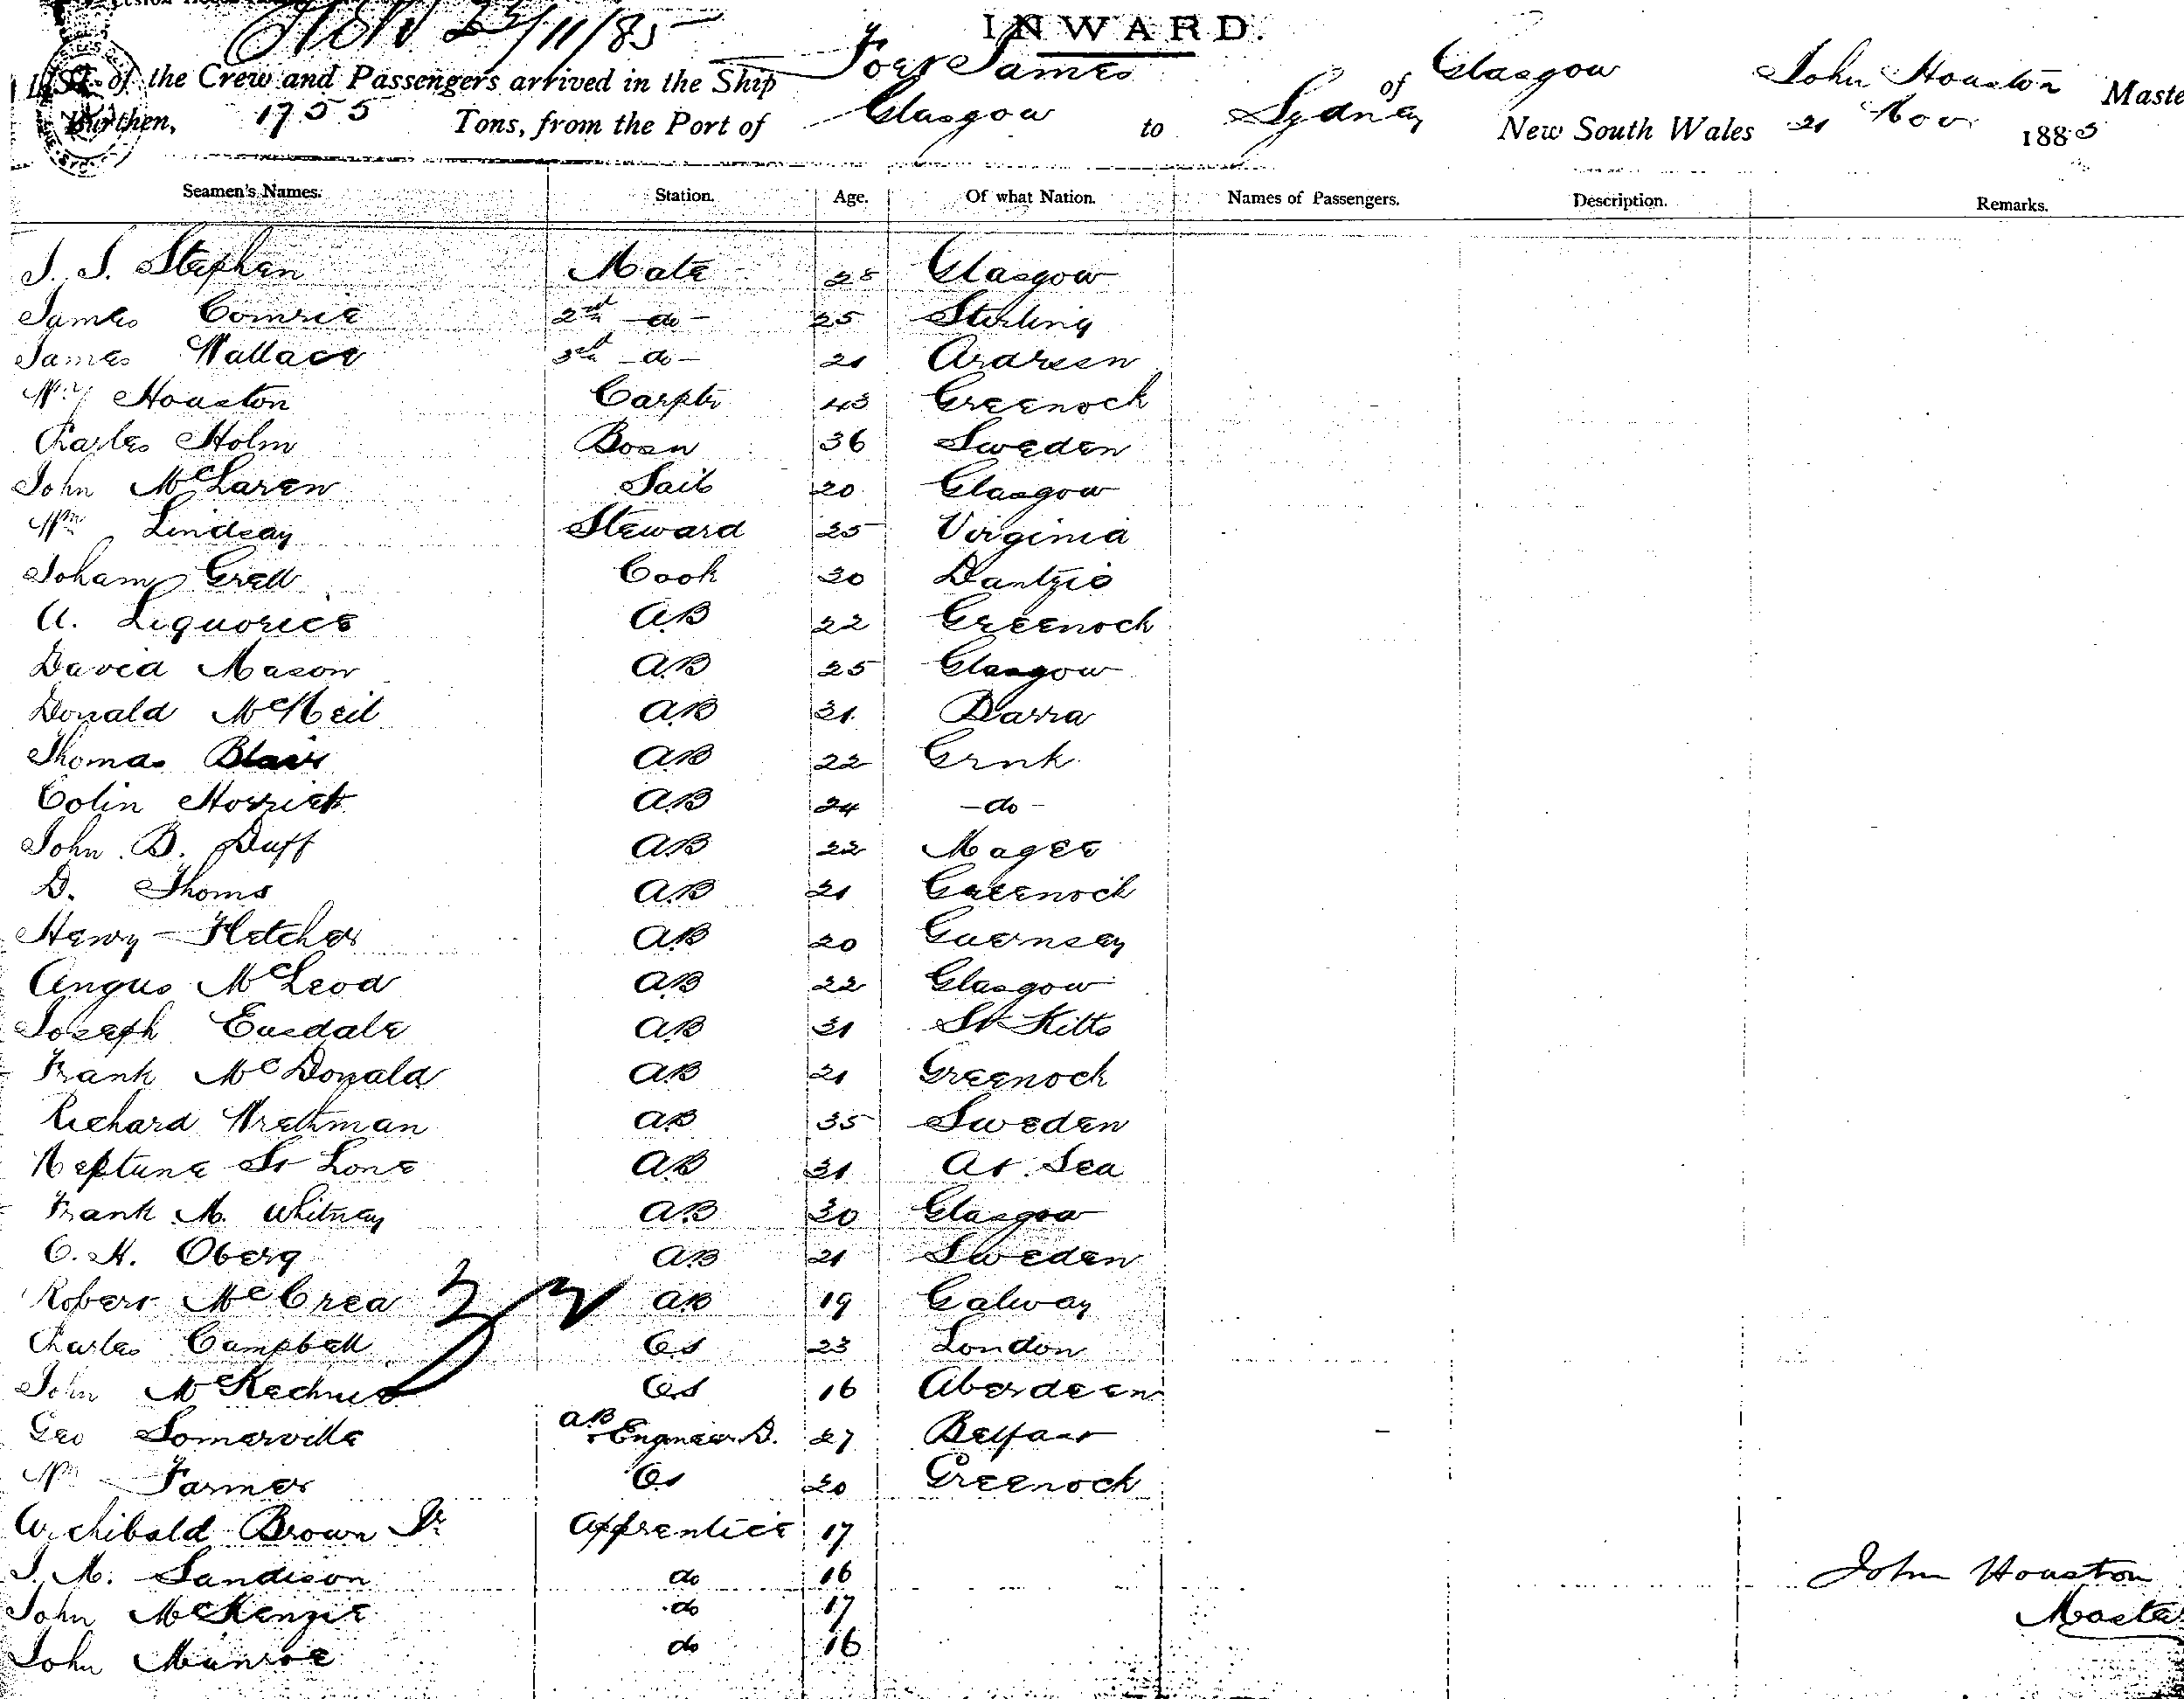 23/11/85
INWARD.
List of the Crew and Passengers arrived in the Ship Fort James of Glasgow John Houston Maste
Burthen, 1755 Tons, from the Port of Glasgow to Sydney New South Wales 21 Nov 1885
Seamen's Names. Station. Age. Of what Nation. Names of Passengers. Description. Remarks.
J. S. Stephen Mate 28 Glasgow
James Comrie 2nd -do- 25 Stirling
James Wallace 3rd -do- 21
Wm Houston Carptr 43 Greenock
Charles Holm Bosn 36 Sweden
John McLaren Sail 20 Glasgow
Wm Lindsay Steward 25 Virginia
Johann Grell Cook 30 Dantzic
A. Liquorice AB 22 Greenock
David Mason AB 25 Glasgow
Donald McNeil AB 31 Barra
Thomas Blair AB 22 Grnk
Colin AB 24 -do-
John B. Duff AB 22 Magee
D. Thoms AB 21 Greenock
Henry Fletcher AB 20 Guernsey
Angus McLeod AB 22 Glasgow
Joseph Easdale AB 31 St Kitts
Frank McDonald AB 21 Greenock
Richard Wrethman AB 35 Sweden
Neptune St Lone AB 31 At Sea
Frank M. Whitney AB 30 Glasgow
C. H. Oberg AB 21 Sweden
Robert McCrea AB 19 Galway
Charles Campbell OS 23 London
John McKechnie OS 16 Aberdeen
Geo Somerville AB & Engineer D. 27 Belfast
Wm Farmer OS 20 Greenock
Archibald Brown Jr Apprentice 17
J. M. Sandison do 16 John Houston
John McKenzie do 17 Maste
John Munroe do 16